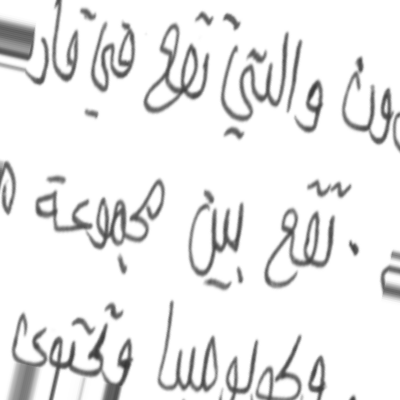 ون والتي تقع في قار
. تقع بين مجموعة
وكولومبيا وتحتوى